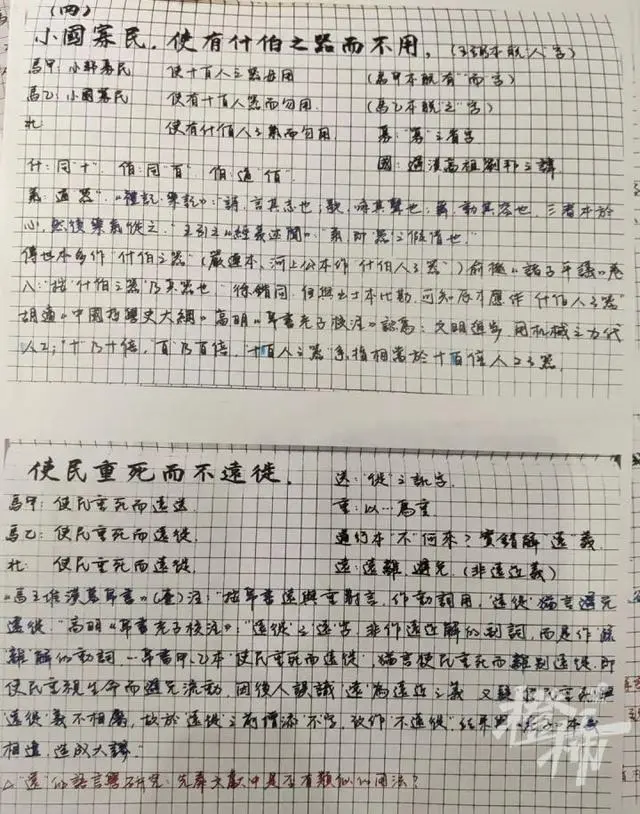 (四)
小國寡民,使有什伯之器而不用,(王弼本脫"人"字)
馬甲:小邦寡民 使十百人之器毋用 (馬甲本脫"有""而"字)
馬乙:小國寡民 使有十百人器而勿用. (馬乙本脫"之"字)
北 使有什佰人之氣而勿用. 寡"之省字
什:同"十". 佰:同"百" 伯:通"佰". 國:避漢高祖劉邦之諱.
氣:通"器". 《禮記·樂記》:"詩,言其志也;歌,咏其聲也;舞,動其容也.三者本於
心,然後樂氣從之."王引之《經義述聞》:"氣,即器之假借也."
傳世本多作"什伯之器"(嚴遵本、河上公本作"什伯人之器")俞樾《諸子平議》卷
八:"什伯之器"乃兵器也."徐鍇同.但與出土本比勘,可知原本應作"什伯人之器"
胡適《中國哲學史大綱》高明《帛書老子校注》認為:文明進步,用机械之力代
人工;"十"乃十倍,"百"乃百倍,"十百人之器"系指相當於十百倍人工之器.
使民重死而不遠徙. 送:"徙"之訛字
馬甲:使民重死而遠送. 重:以…為重
馬乙:使民重死而遠徙. 通行本"不"何來?實錯解"遠"義.
北 使民重死而遠徙. 遠:遠離,避免.(非遠近義)
《馬王堆漢墓帛書》(壹)注:"按帛書遠與重對言,作動詞用,'遠徙'猶言避免
遠徙."高明《帛書老子校注》:"'遠徙'之遠字,非作遠近解的副詞,而是作"疏
離"解的動詞.…帛書甲、乙本"使民重死而遠徙",猶言使民重死而離別遠徙,即
使民重視生命而避免流動.因後人誤識"遠"為遠近之義,又疑"使民重死而
遠徙"義不相屬,故於"遠徙"之前增添"不"字,改作"不遠徙",結果
相違,造成大謬."
△"遠"的語言學研究:先秦文獻中是否有類似的用法?